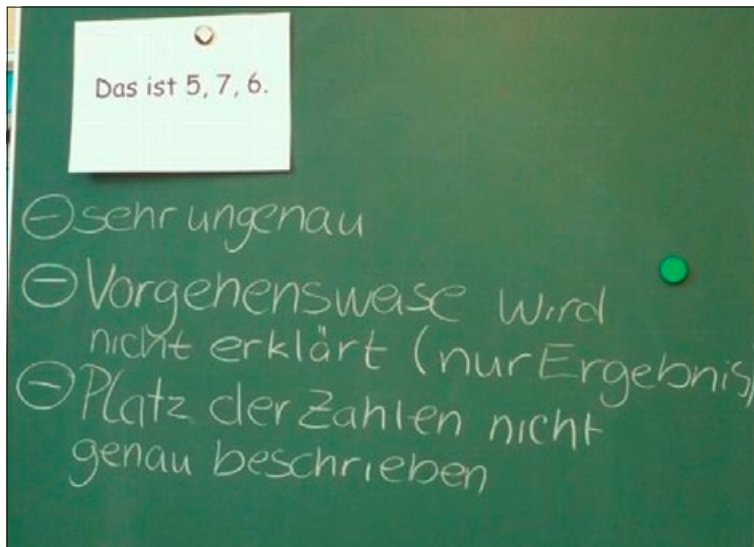 Das ist 5, 7, 6.
⊖ sehr ungenau
⊖ Vorgehensweise wird
nicht erklärt (nur Ergebnis)
⊖ Platz der Zahlen nicht
genau beschrieben